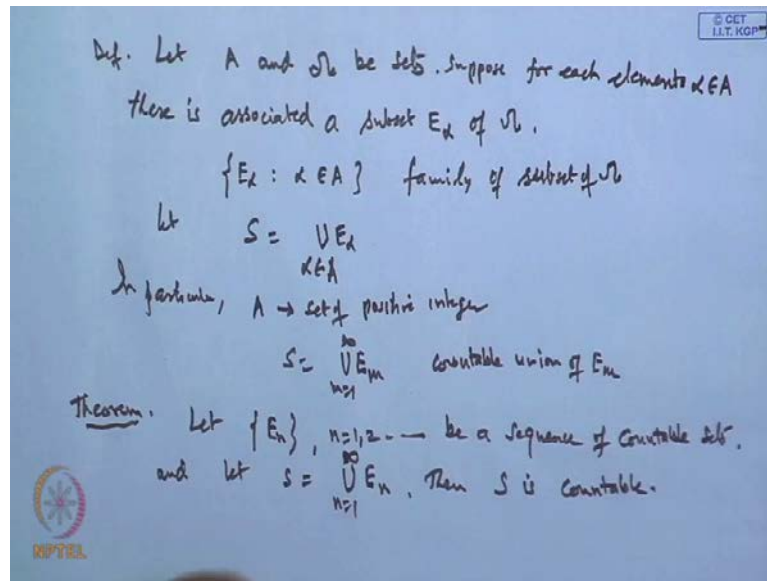 © CET
I.I.T. KGP
Def. Let A and Ω be sets. Suppose for each elements α ∈ A
there is associated a subset Eα of Ω.
{Eα : α ∈ A} family of subset of Ω
Let S = ∪ Eα
α∈A
In particular, A → set of positive integer
S = ∞∪m=1 Em countable union of Em
Theorem. Let {En}, n=1,2--- be a sequence of countable sets.
and let S = ∞∪n=1 En. Then S is countable.
NPTEL